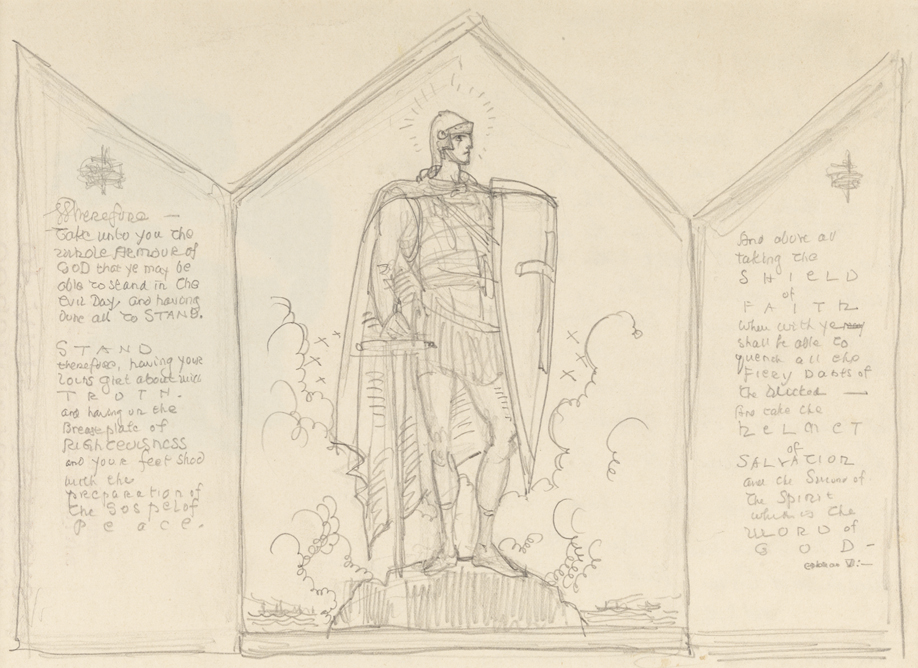 Wherefore —
Take unto you the
whole Armour of
GOD that ye may be
able to stand in the
Evil Day, and having
Done all to STAND.
STAND
therefore, having your
loins girt about with
TRUTH.
and having on the
Breastplate of
RIGHTEOUSNESS
and your feet shod
with the
preparation of
the Gospel of
Peace.
And above all
taking the
SHIELD
of
FAITH
wher with ye
shall be able to
quench all the
Fiery Darts of
the Wicked —
And take the
HELMET
of
SALVATION
and the Sword of
the SPIRIT
which is the
WORD of
GOD —